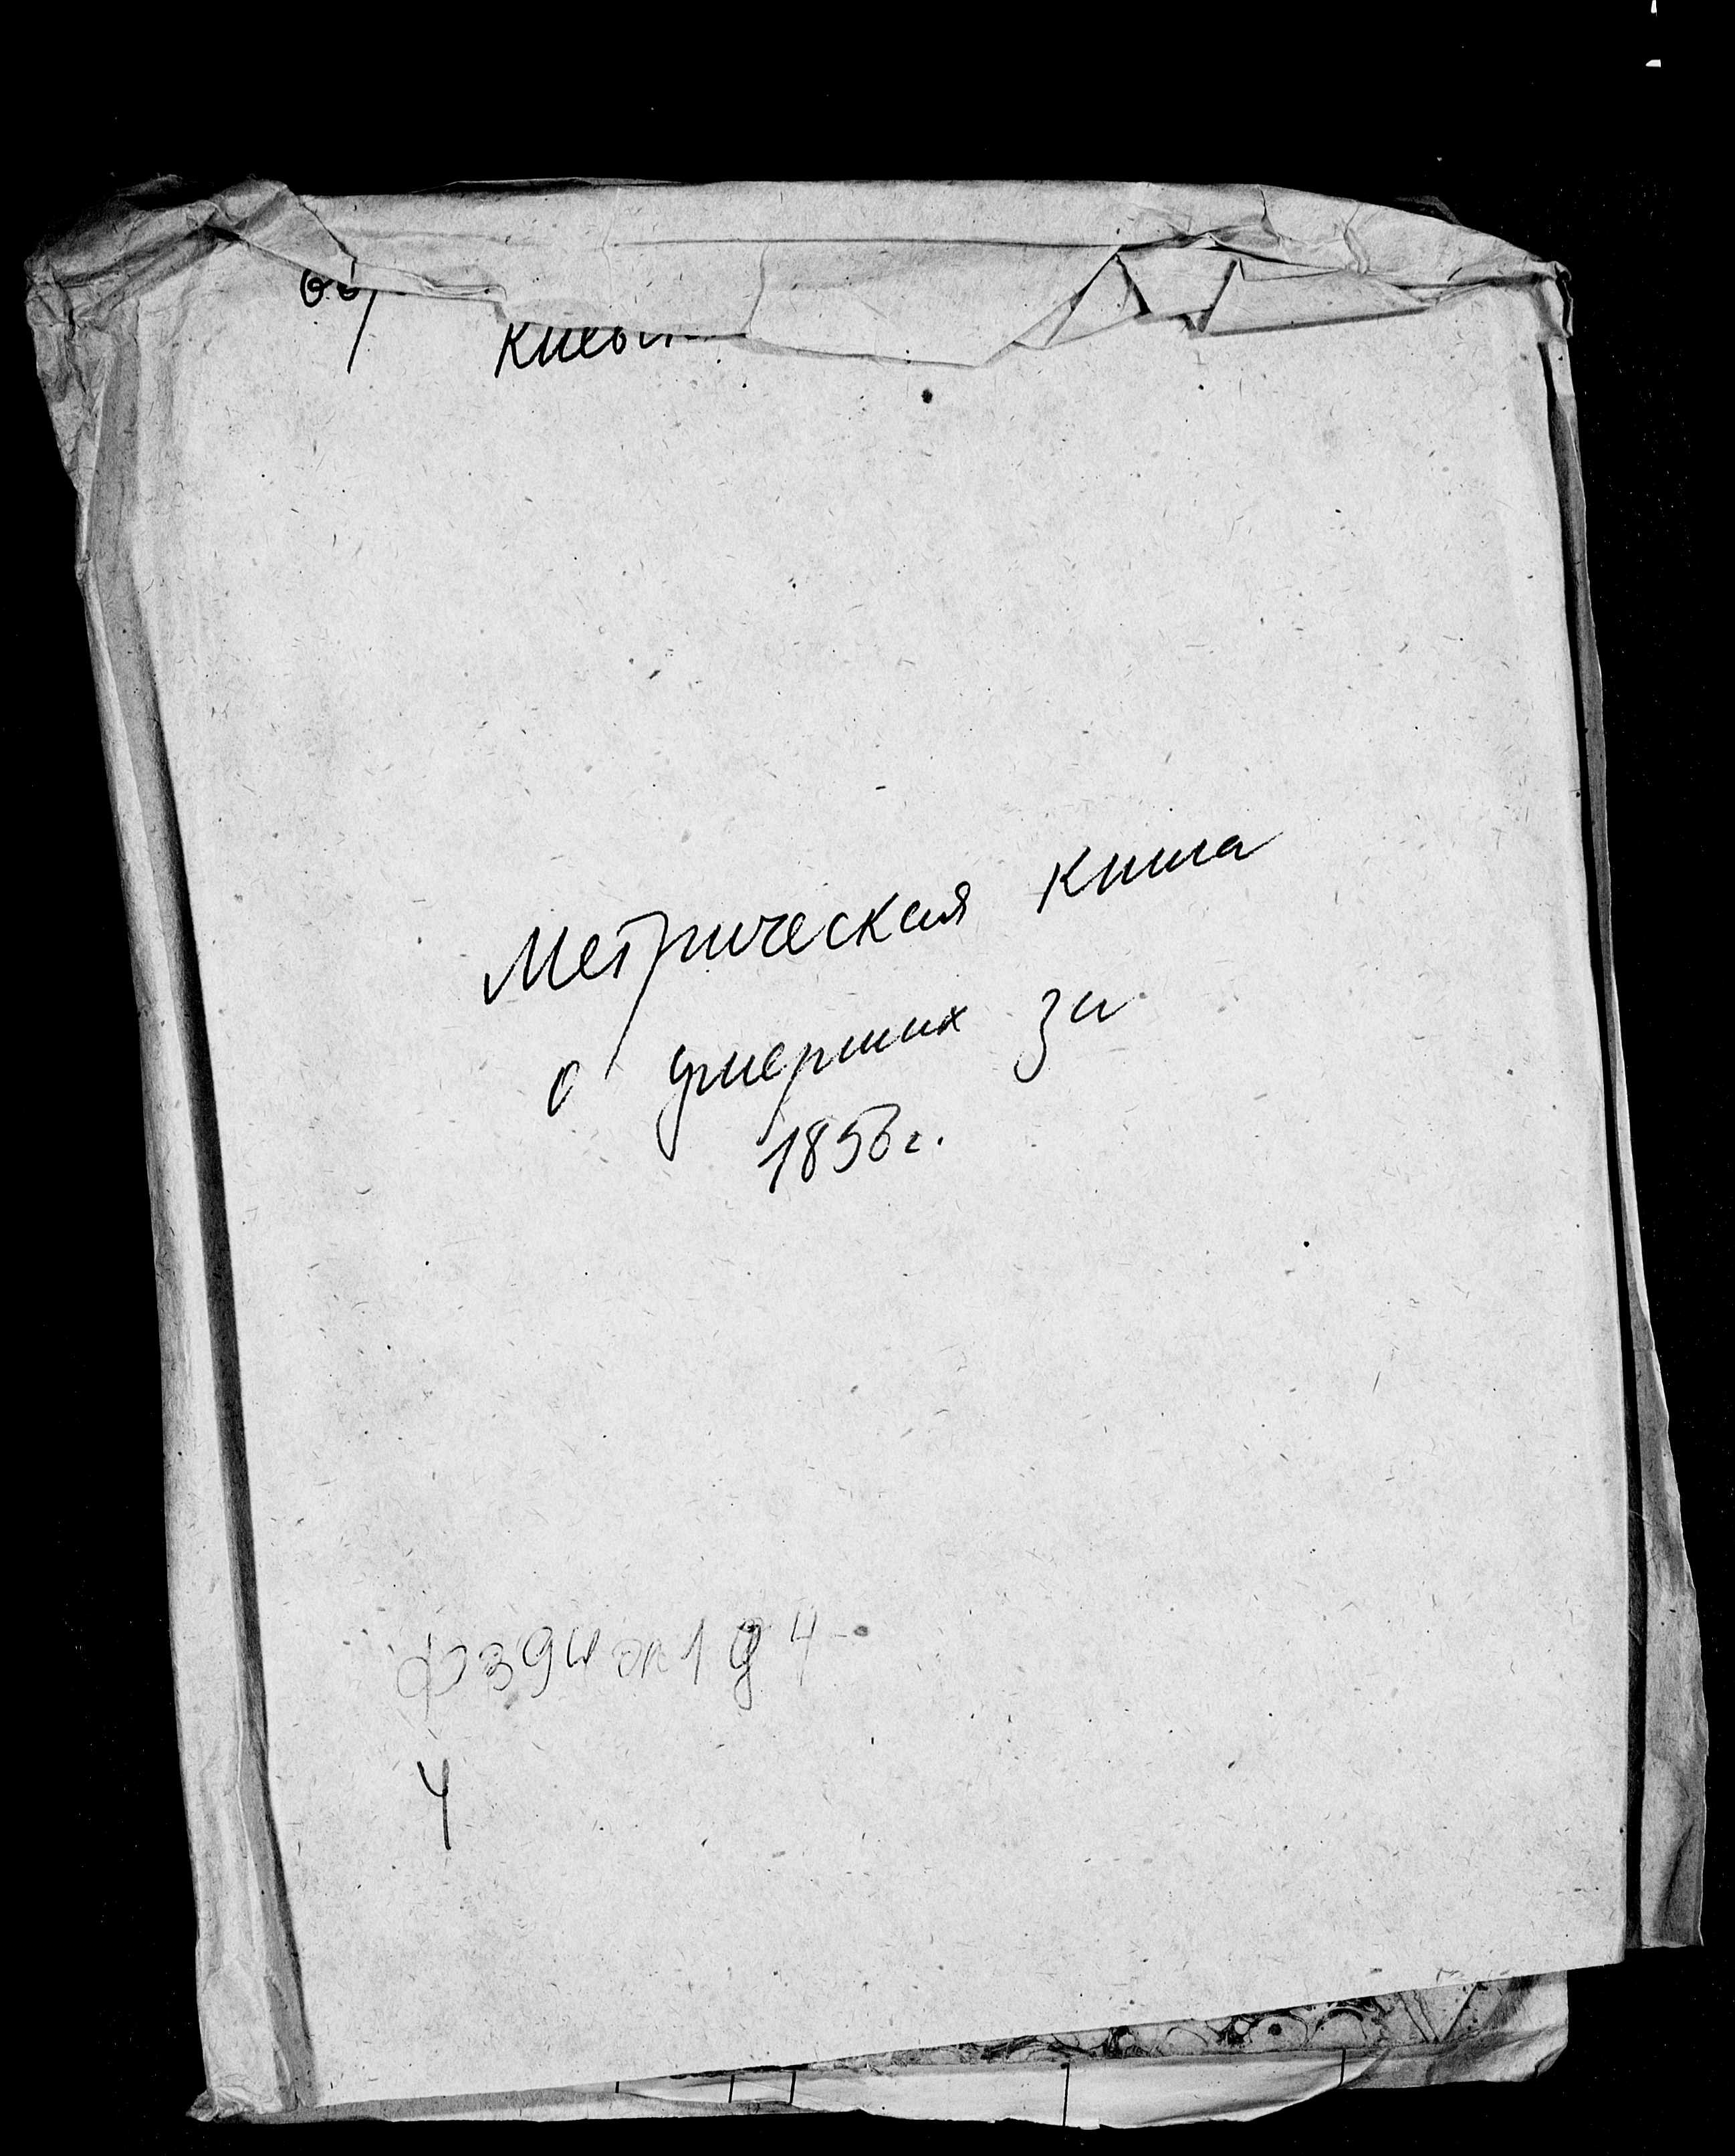 Метрическая книга
о умерших за
1856г.
Ф 394 оп 1 д 4
4